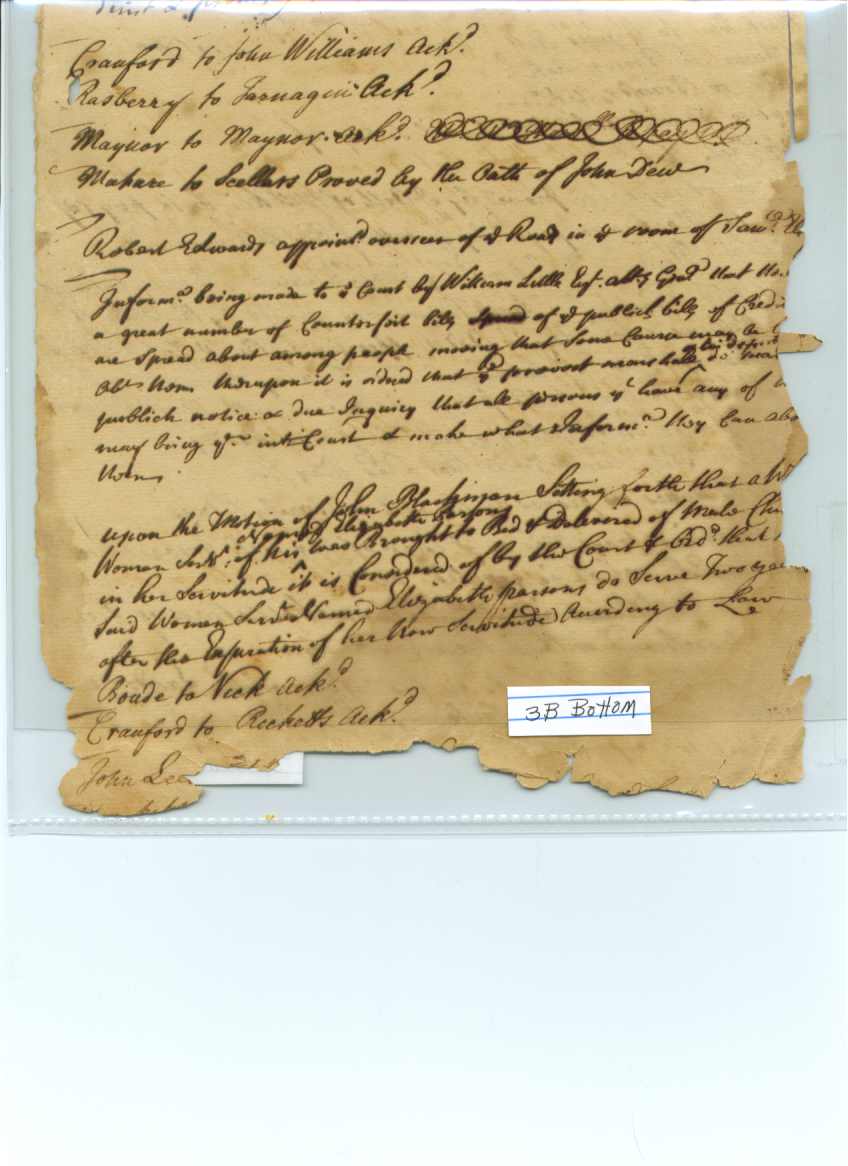 Crauford to John Williams Ack.d
Rasberry to Jarnagin Ack.d
Maynor to Maynor Ack.d
Mahare to Scellars Proved by the Oath of John Dew
Robert Edwards appoint.d overseer of ye Road in ye room of Sam.ll
Inform.n being made to ye Court by William Little Esq.r atty Gen.ll that
a great number of Counterfeit bills of ye publick bills of
are Spread about among people moving that Some Course may be
abt them thereupon it is ordred that ye provost marshall or his do
publick notice & due Inquiry that all persons yt have any of
may bring ym into Court & make what Inform.n they Can
them
upon the Motion of John Blackman Setting forth that a
Woman Serv.t of his Named Elizabeth Parsons was Brought to Bed & Delivered of Male
in her Servitude it is Considered of by the Court & Ord.d that
Said Woman Serv.t Named Elizabeth parsons do Serve Two
after the Expiration of her Now Servitude According to Law
Boude to Vick Ack.d
Crauford to Ricketts Ack.d
3B BOTTOM
John Lee